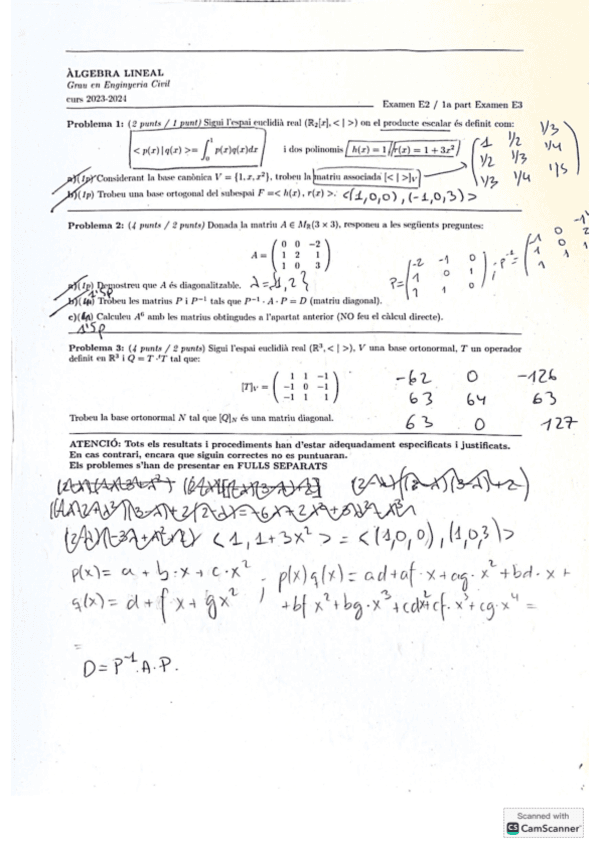 ÀLGEBRA LINEAL
Grau en Enginyeria Civil
curs 2023-2024
Examen E2 / 1a part Examen E3
Problema 1: (2 punts / 1 punt) Sigui l'espai euclidià real (ℝ₂[x], < | >) on el producte escalar és definit com:
< p(x) | q(x) >= ∫₀¹ p(x)q(x)dx i dos polinomis h(x) = 1 i r(x) = 1 + 3x²
1 1/2 1/3
1/2 1/3 1/4
1/3 1/4 1/5
a) (1p) Considerant la base canònica V = {1, x, x²}, trobeu la matriu associada [< | >]V
b) (1p) Trobeu una base ortogonal del subespai F =< h(x), r(x) >. <(1,0,0), (-1,0,3)>
Problema 2: (4 punts / 2 punts) Donada la matriu A ∈ Mℝ(3 × 3), responeu a les següents preguntes:
A =
0 0 −2
1 2 1
1 0 3
P=
-2 -1 0
1 0 1
1 1 0
; P⁻¹=
-1 0 -1
1 0 2
1 1 1
a) (1p) Demostreu que A és diagonalitzable. λ={1,2}
1'5p
b) Trobeu les matrius P i P⁻¹ tals que P⁻¹ · A · P = D (matriu diagonal).
c) Calculeu A⁶ amb les matrius obtingudes a l'apartat anterior (NO feu el càlcul directe).
1'5p
Problema 3: (4 punts / 2 punts) Sigui l'espai euclidià real (ℝ³, < | >), V una base ortonormal, T un operador
definit en ℝ³ i Q = T · ᵗT tal que:
[T]V =
1 1 −1
−1 0 −1
−1 1 1
-62 0 -126
63 64 63
63 0 127
Trobeu la base ortonormal N tal que [Q]N és una matriu diagonal.
ATENCIÓ: Tots els resultats i procediments han d'estar adequadament especificats i justificats.
En cas contrari, encara que siguin correctes no es puntuaran.
Els problemes s'han de presentar en FULLS SEPARATS
<1, 1+3x²> = <(1,0,0), (1,0,3)>
p(x)= a + b·x + c·x² ; p(x)q(x) = ad+af·x+ag·x²+bd·x+
q(x)= d+fx+gx² +bfx²+bg·x³+cdx²+cf·x³+cg·x⁴=
=
D=P⁻¹·A·P.
Scanned with
CS CamScanner